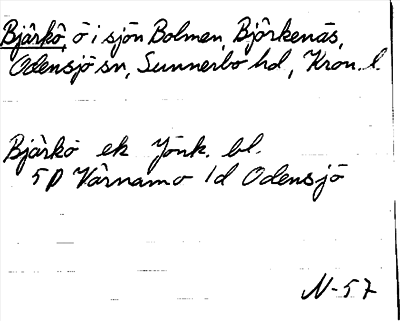 Bjärkö, ö i sjön Bolmen, Björkenäs,
Odensjö sn, Sunnerbo hd, Kron. l.
Bjärkö ek Jönk. bl.
5D Värnamo 1d Odensjö
N-57